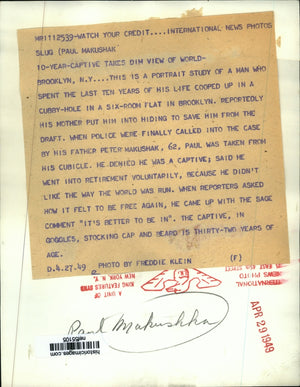 MR1112539-WATCH YOUR CREDIT....INTERNATIONAL NEWS PHOTOS
SLUG (PAUL MAKUSHAK
10-YEAR-CAPTIVE TAKES DIM VIEW OF WORLD-
BROOKLYN, N.Y....THIS IS A PORTRAIT STUDY OF A MAN WHO
SPENT THE LAST TEN YEARS OF HIS LIFE COOPED UP IN A
CUBBY-HOLE IN A SIX-ROOM FLAT IN BROOKLYN. REPORTEDLY
HIS MOTHER PUT HIM INTO HIDING TO SAVE HIM FROM THE
DRAFT. WHEN POLICE WERE FINALLY CALLED INTO THE CASE
BY HIS FATHER PETER MAKUSHAK, 62, PAUL WAS TAKEN FROM
HIS CUBICLE. HE DENIED HE WAS A CAPTIVE; SAID HE
WENT INTO RETIREMENT VOLUNTARILY, BECAUSE HE DIDN'T
LIKE THE WAY THE WORLD WAS RUN. WHEN REPORTERS ASKED
HOW IT FELT TO BE FREE AGAIN, HE CAME UP WITH THE SAGE
COMMENT "IT'S BETTER TO BE IN". THE CAPTIVE, IN
GOGGLES, STOCKING CAP AND BEARD IS THIRTY-TWO YEARS OF
AGE.
D.4.27.49 PHOTO BY FREDDIE KLEIN (F)
INTERNATIONAL
NEWS PHOTO
235 EAST 45th STREET
NEW YORK, N.Y.
A UNIT OF
KING FEATURES SYND
APR 29 1949
Paul Makushka
historicimages.com